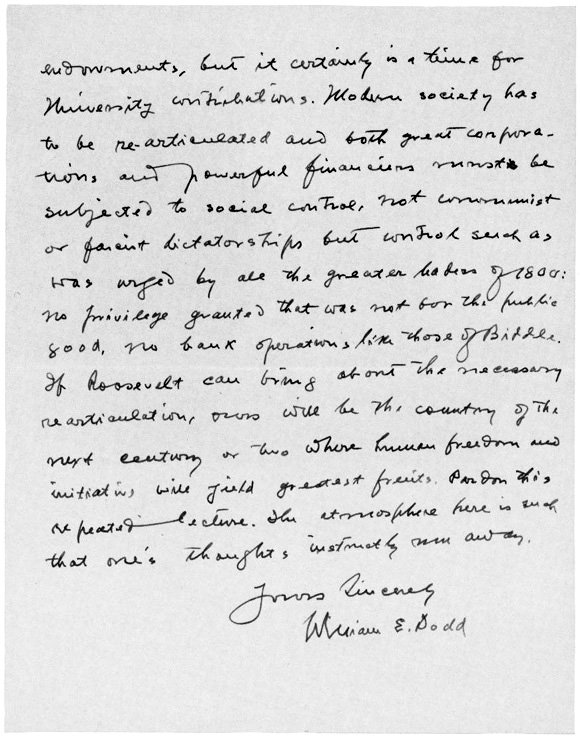 endowments, but it certainly is a time for
University contributions. Modern society has
to be re-articulated and both great corpora-
tions and powerful financiers must be
subjected to social control, not communist
or facist dictatorships but control such as
was urged by all the greater leaders of 1800:
no privilege granted that was not for the public
good, no bank operations like those of Biddle.
If Roosevelt can bring about the necessary
rearticulation, ours will be the country of the
next century or two where human freedom and
initiative will yield greatest fruits. Pardon this
repeated lecture. The atmosphere here is such
that one's thoughts instinctly run away.
Yours Sincerely
William E. Dodd